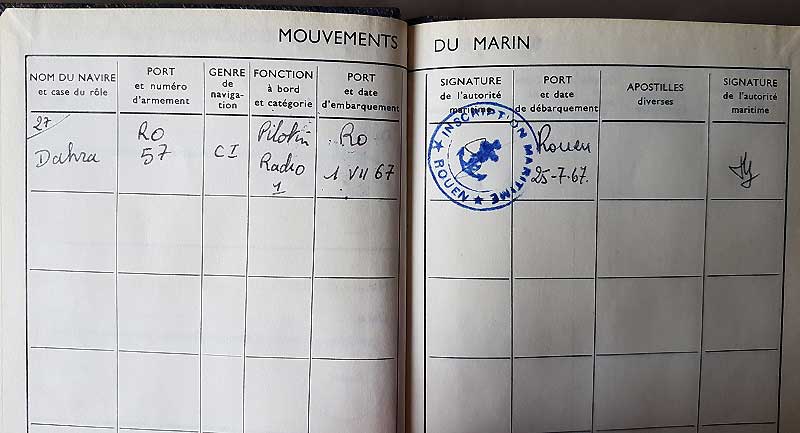 MOUVEMENTS DU MARIN
NOM DU NAVIRE
et case du rôle
PORT
et numéro
d'armement
GENRE
de
naviga-
tion
FONCTION
à bord
et catégorie
PORT
et date
d'embarquement
SIGNATURE
de l'autorité
maritime
PORT
et date
de débarquement
APOSTILLES
diverses
SIGNATURE
de l'autorité
maritime
27
Dahra
RO
57
CI
Pilotin
Radio
1
RO
1 VII 67
INSCRIPTION MARITIME
ROUEN
Rouen
25-7-67.